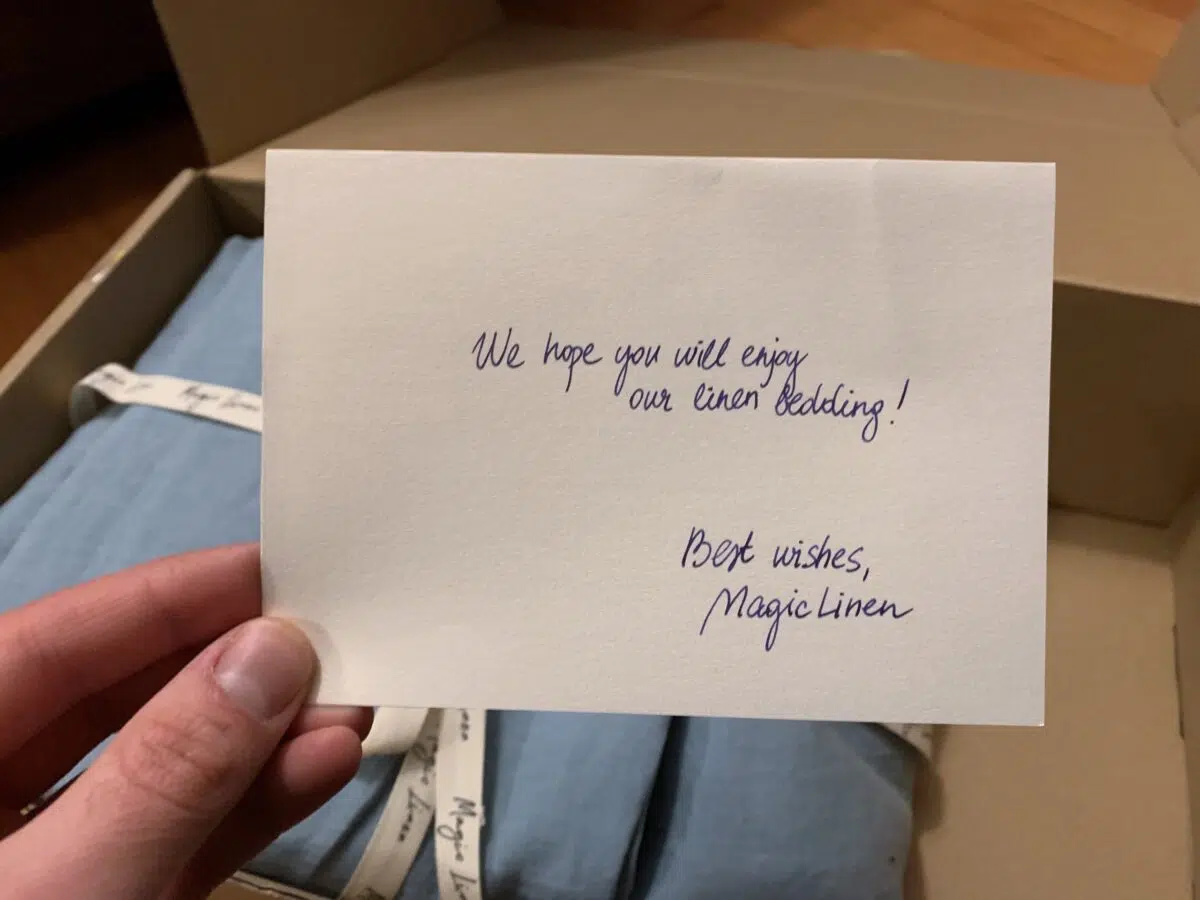 We hope you will enjoy
our linen bedding!
Best wishes,
MagicLinen
Magic Linen
Magic Linen
Magic Li